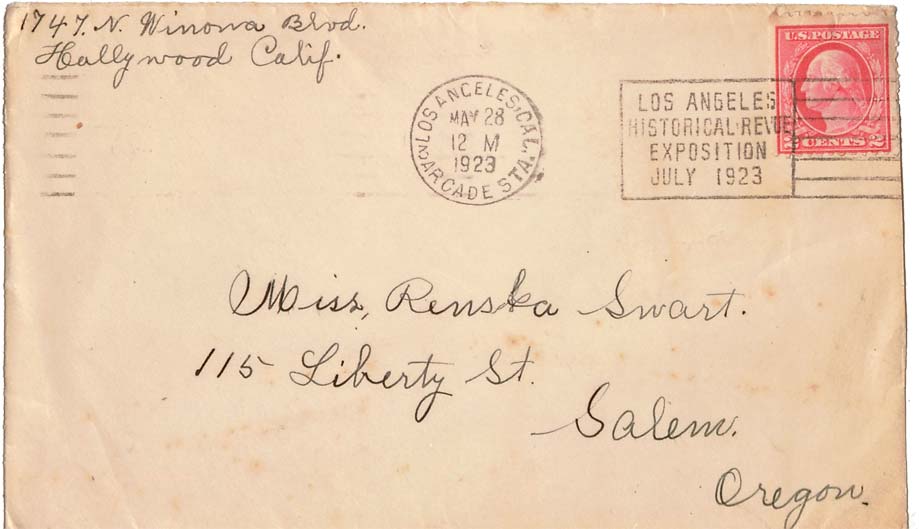 1747. N. Winona Blvd.
Hollywood Calif.
LOS ANGELES, CAL.
MAY 28
12 M
1923
ARCADE STA.
LOS ANGELES
HISTORICAL REVUE
EXPOSITION
JULY 1923
U.S. POSTAGE
2 CENTS 2
Miss, Renska Swart.
115 Liberty St.
Salem.
Oregon.